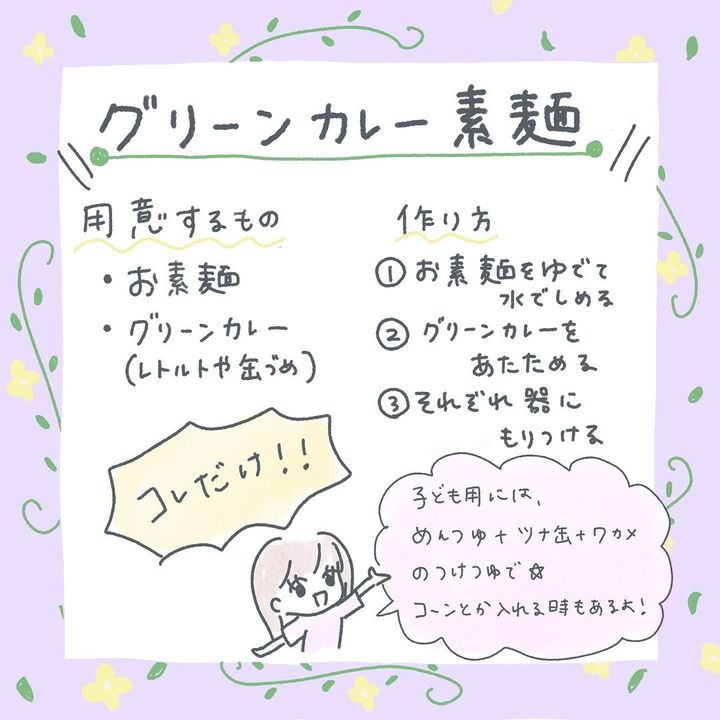 グリーンカレー素麺
用意するもの
・お素麺
・グリーンカレー
(レトルトや缶づめ)
コレだけ!!
作り方
① お素麺をゆでて
水でしめる
② グリーンカレーを
あたためる
③ それぞれ器に
もりつける
子ども用には、
めんつゆ+ツナ缶+ワカメ
のつけつゆで☆
コーンとか入れる時もあるよ!